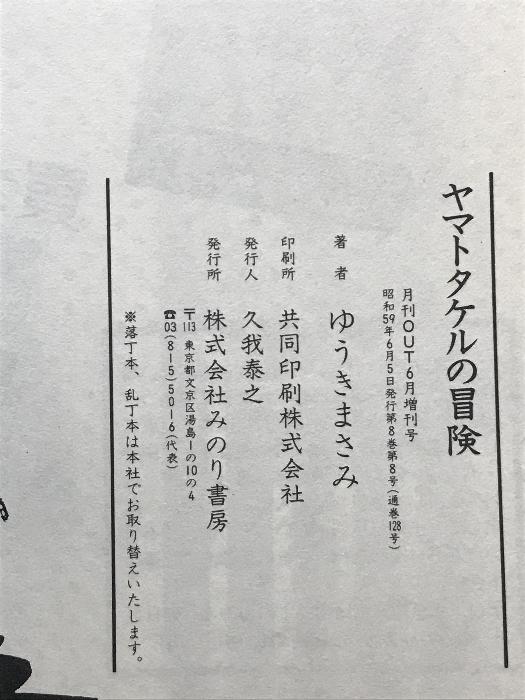 ヤマトタケルの冒険
月刊OUT6月増刊号
昭和59年6月5日発行第8巻第8号(通巻128号)
著者 ゆうきまさみ
印刷所 共同印刷株式会社
発行人 久我泰之
発行所 株式会社みのり書房
〒113 東京都文京区湯島1の10の4
☎03(815)5016(代表)
※落丁本、乱丁本は本社でお取り替えいたします。